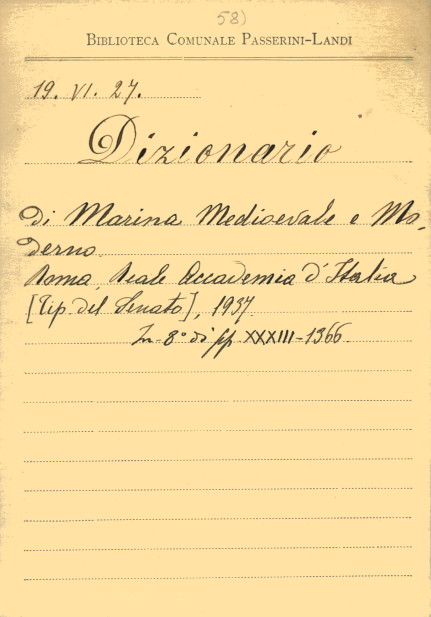 58)
BIBLIOTECA COMUNALE PASSERINI-LANDI
19. VI. 27.
Dizionario
di Marina Medioevale e Mo-
derno.
Roma, Reale Accademia d'Italia
[Tip. del Senato], 1937.
In-8° di pp XXXIII-1366.